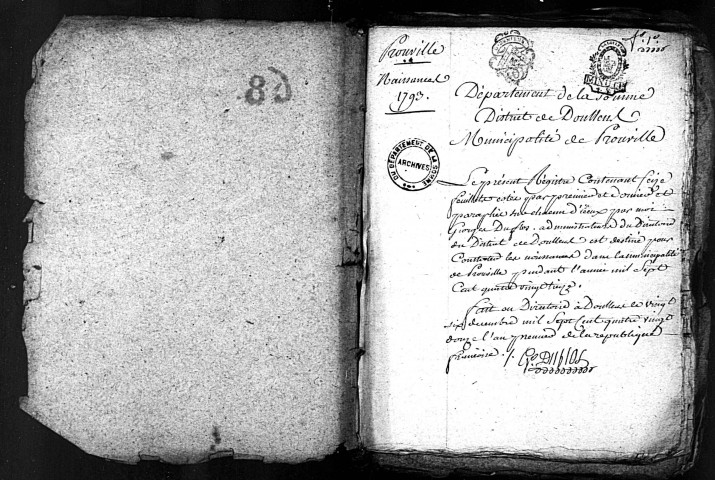 Prouville
Naissances
1793.
Département de la Somme
District de Doullens
Municipalité de Prouville
ARCHIVES
DU DÉPARTEMENT DE LA SOMME
Le présent Registre Contenant seize
feuillets cotés par premier et dernier et
paraphé sur chacun d'iceux par moi
Georges Duflos, administrateur du Directoire
du District de Doullens est destiné pour
Constater les naissances dans la municipalité
de Prouville pendant l'année mil sept
Cent quatre vingt treize.
fait au Directoire à Doullens le vingt
six decembre mil Sept Cent quatre vingt
douze l'an premier de la republique
françoise ./. Gs Duflos